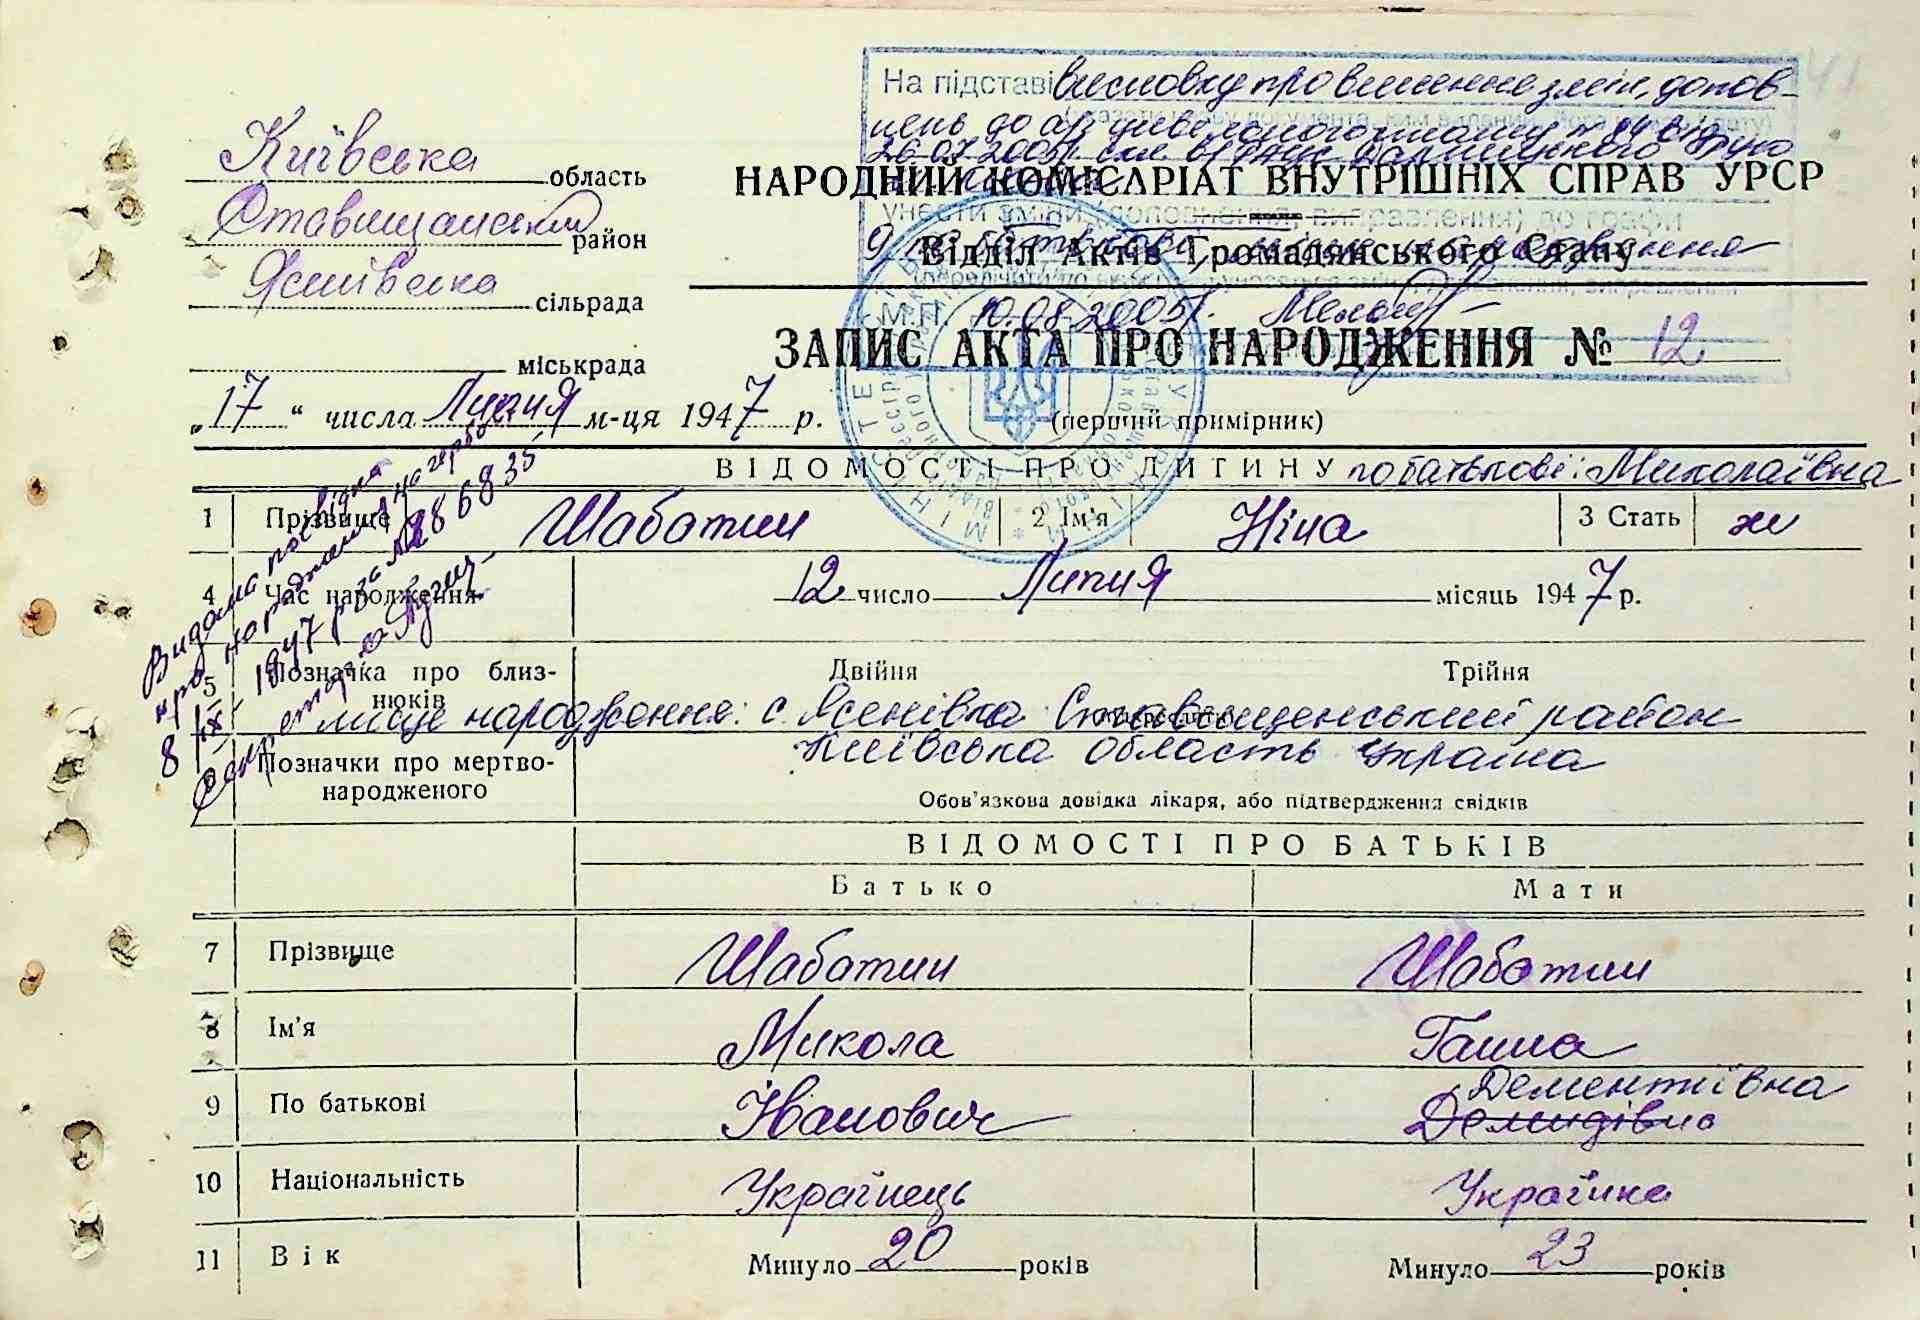 41
На підставі висновку про внесення змін, допов-
нень до а/з цивільного стану № 84 від
26.07.2005р. скл. відділ РАЦС Дарницького
унести зміни (доповнення, виправлення) до графи
9 по батькові, місце народження
М.П. 10.08.2005р.
Київська область
Ставищанський район
Ясинівська сільрада
міськрада
НАРОДНИЙ КОМІСАРІАТ ВНУТРІШНІХ СПРАВ УРСР
Відділ Актів Громадянського Стану
ЗАПИС АКТА ПРО НАРОДЖЕННЯ № 12
„17“ числа Липня м-ця 1947 р.
(перший примірник)
ВІДОМОСТІ ПРО ДИТИНУ по батькові: Миколаївна
1 Прізвище Шаботин 2 Ім'я Ніна 3 Стать ж
4 Час народження 12 число Липня місяць 1947 р.
5 Позначка про близ-
нюків
Двійня Трійня
місце народження: с. Ясенівка Ставищенський район
Київська область Україна
6 Позначки про мертво-
народженого
Обов'язкова довідка лікаря, або підтвердження свідків
Видана посвідка
про народження на гербов.
8/IX 1947 р. за № 286835
Секретар с/р
ВІДОМОСТІ ПРО БАТЬКІВ
Батько Мати
7 Прізвище Шаботин Шаботин
8 Ім'я Микола Ганна
9 По батькові Іванович Дементіївна
Демидівна
10 Національність Українець Українка
11 Вік Минуло 20 років Минуло 23 років